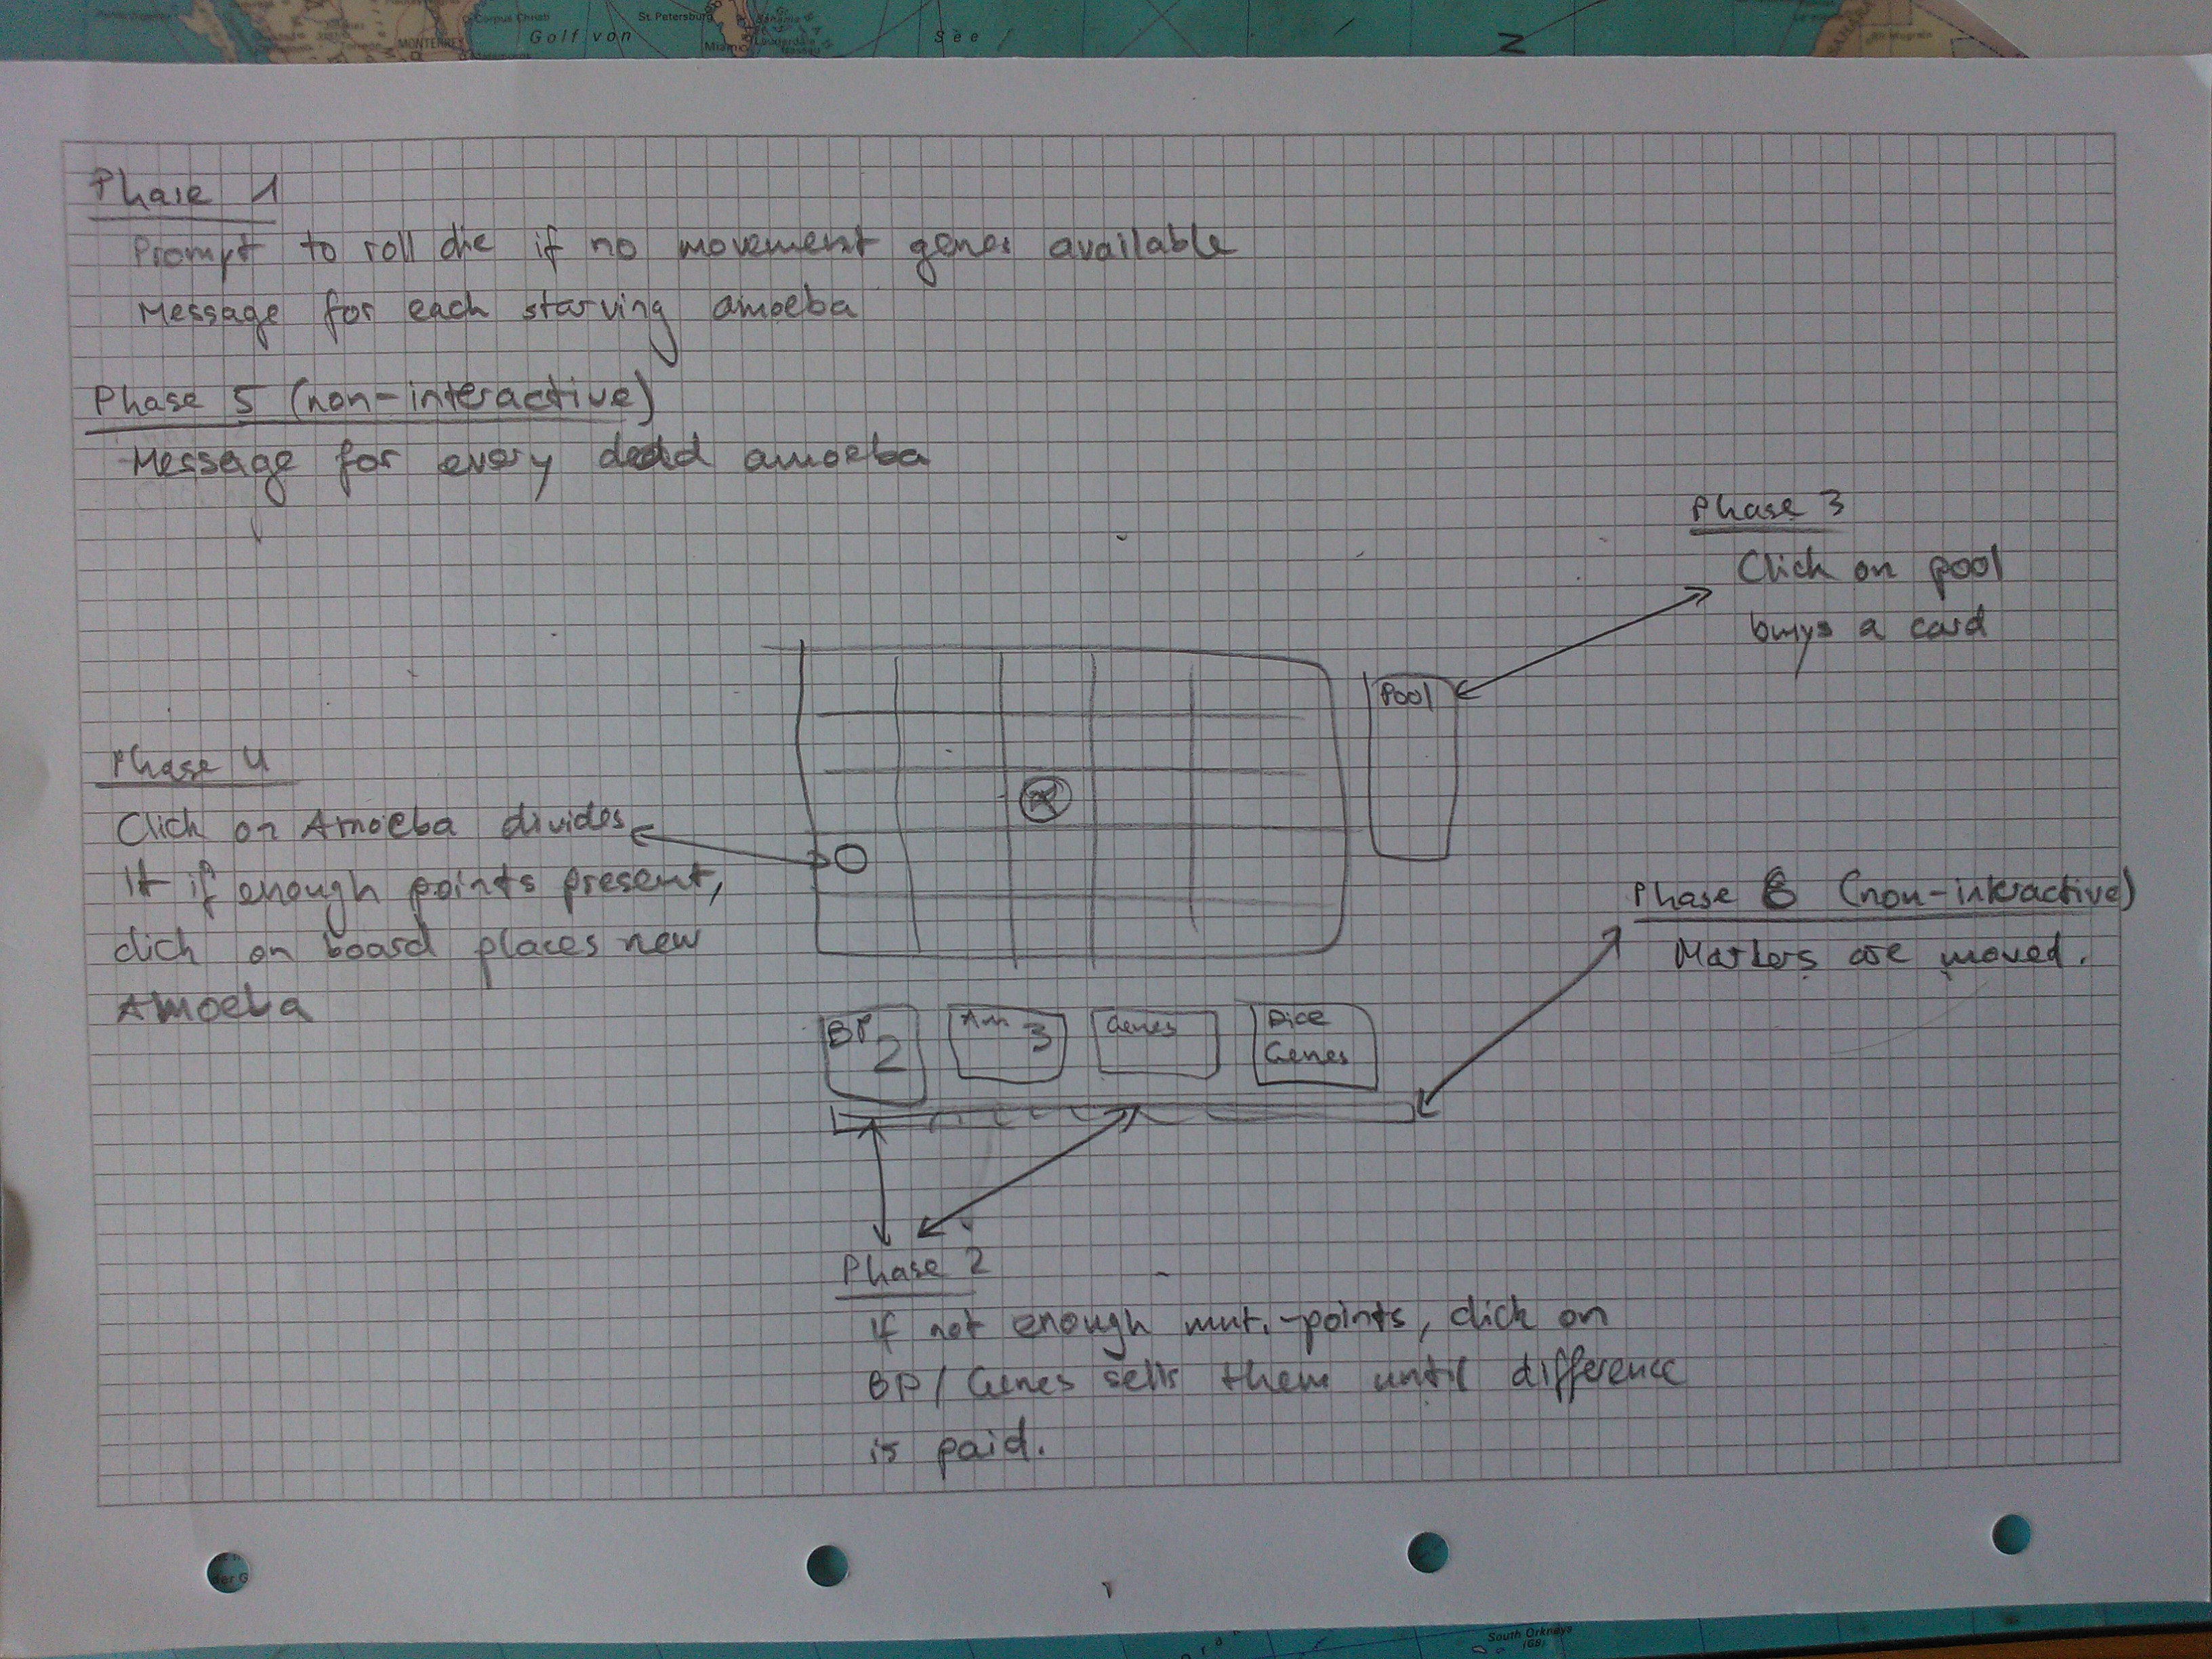 Corpus Christi
St. Petersburg
Golf von
See
MONTERREY
Miami
Bahama
Z
Phase 1
Prompt to roll die if no movement genes available
Message for each starving amoeba
Phase 5 (non-interactive)
Message for every dead amoeba
Phase 3
Click on pool
buys a card
Pool
Phase 4
Click on Amoeba divides
It if enough points present,
click on board places new
Amoeba
Phase 6 (non-interactive)
Markers are moved.
BP 2
Am 3
Genes
Dice
Genes
Phase 2
If not enough mut.-points, click on
BP/Genes sells them until difference
is paid.
der G
South Orkneys
(GB)